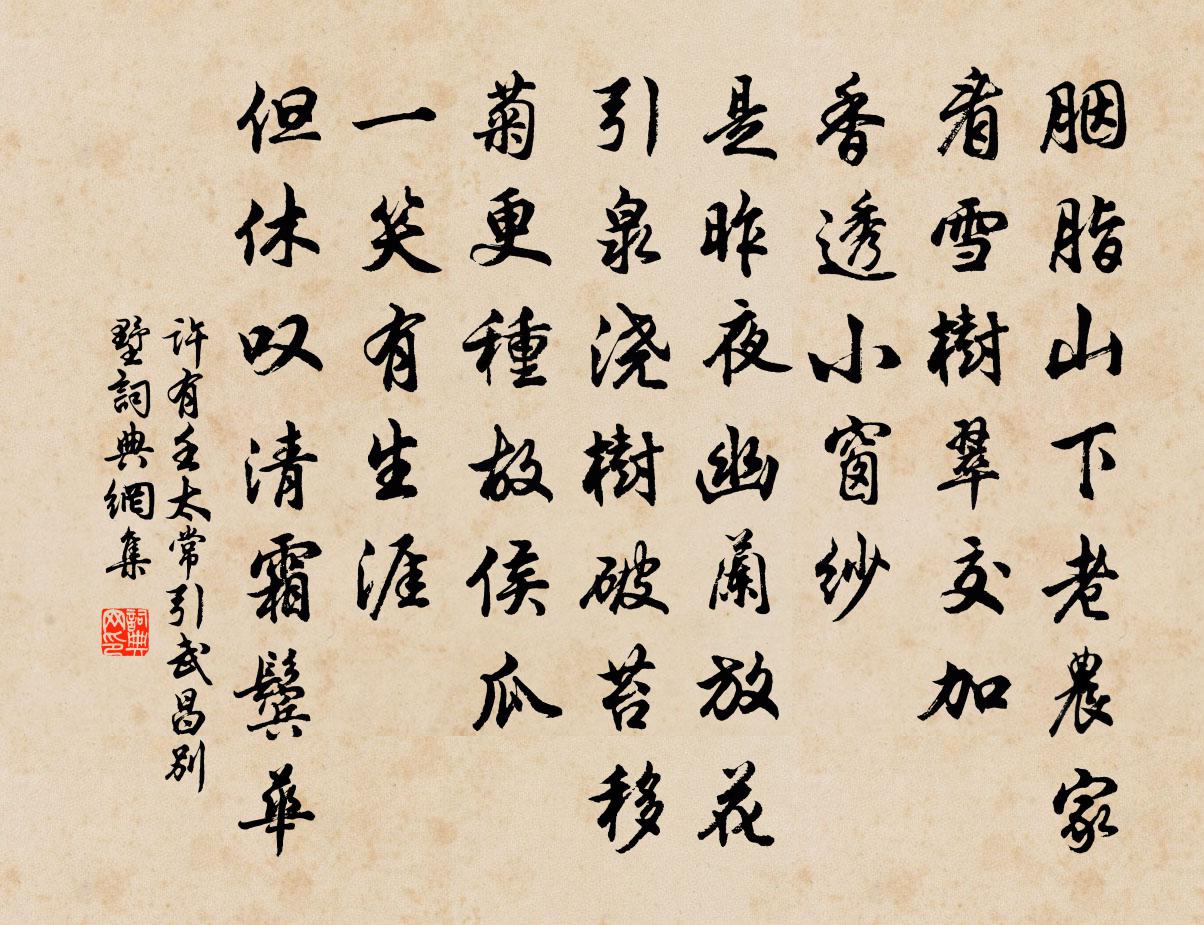 胭脂山下老農家
看雪樹翠交加
香透小窗紗
是昨夜幽蘭放花
引泉浇樹破苔移
菊更種故侯瓜
一笑有生涯
但休叹清霜鬓華
許有壬太常引武昌别
墅詞典網集
詞典
网印